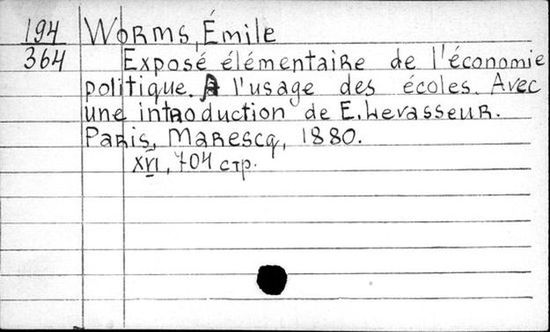 194 Worms, Émile
364 Exposé élémentaire de l'économie
politique. A l'usage des écoles. Avec
une introduction de E. Levasseur.
Paris, Marescq, 1880.
XVI, 704 стр.